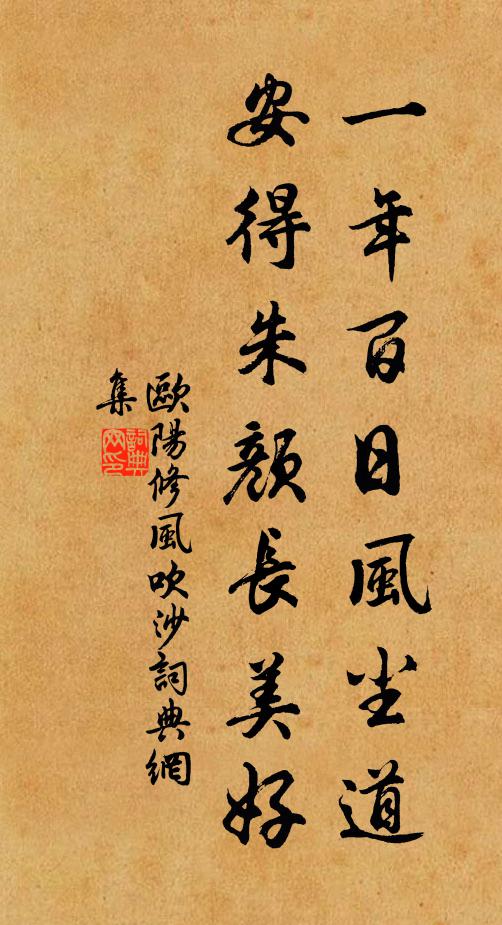 一年百日風尘道
安得朱顏長美好
歐陽修風吹沙詞典網
集
詞典
网印